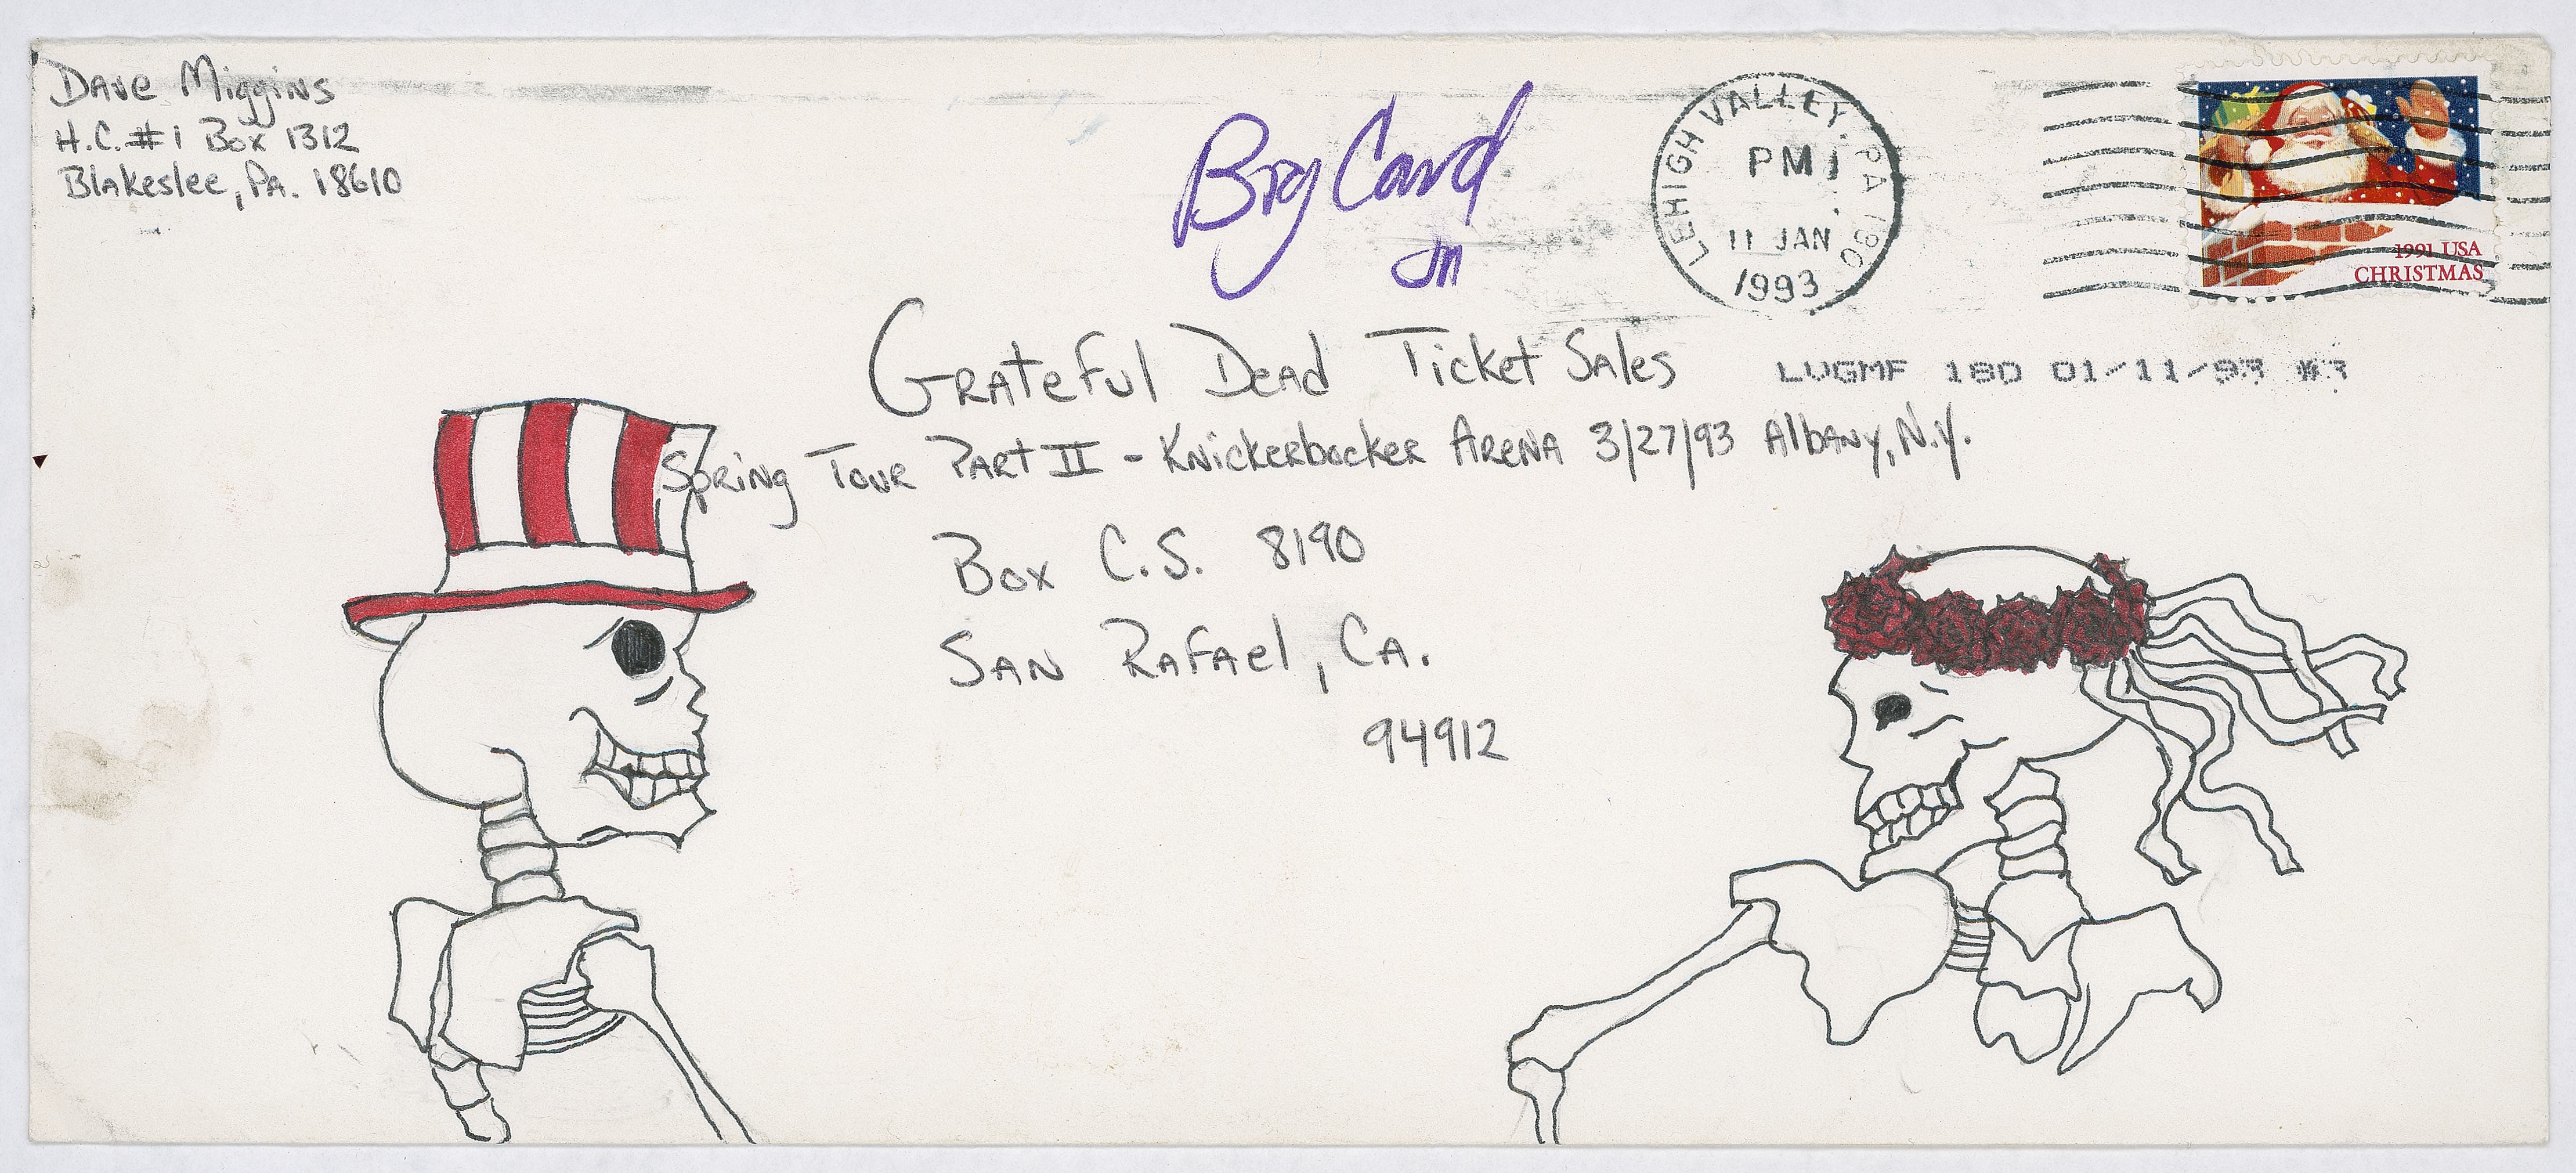 Dave Miggins
H.C. #1 Box 1312
Blakeslee, Pa. 18610
Big Card
JM
LEHIGH VALLEY, PA 180
PM
11 JAN
1993
1991 USA
CHRISTMAS
Grateful Dead Ticket Sales
LVGMF 180 01/11/93 #3
Spring Tour Part II - Knickerbocker Arena 3/27/93 Albany, N.Y.
Box C.S. 8190
San Rafael, CA.
94912